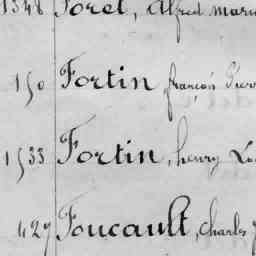 1348 Forel, Alfred Marie
150 Fortin, françois Pierr
1533 Fortin, henry Lo
427 Foucault, Charles